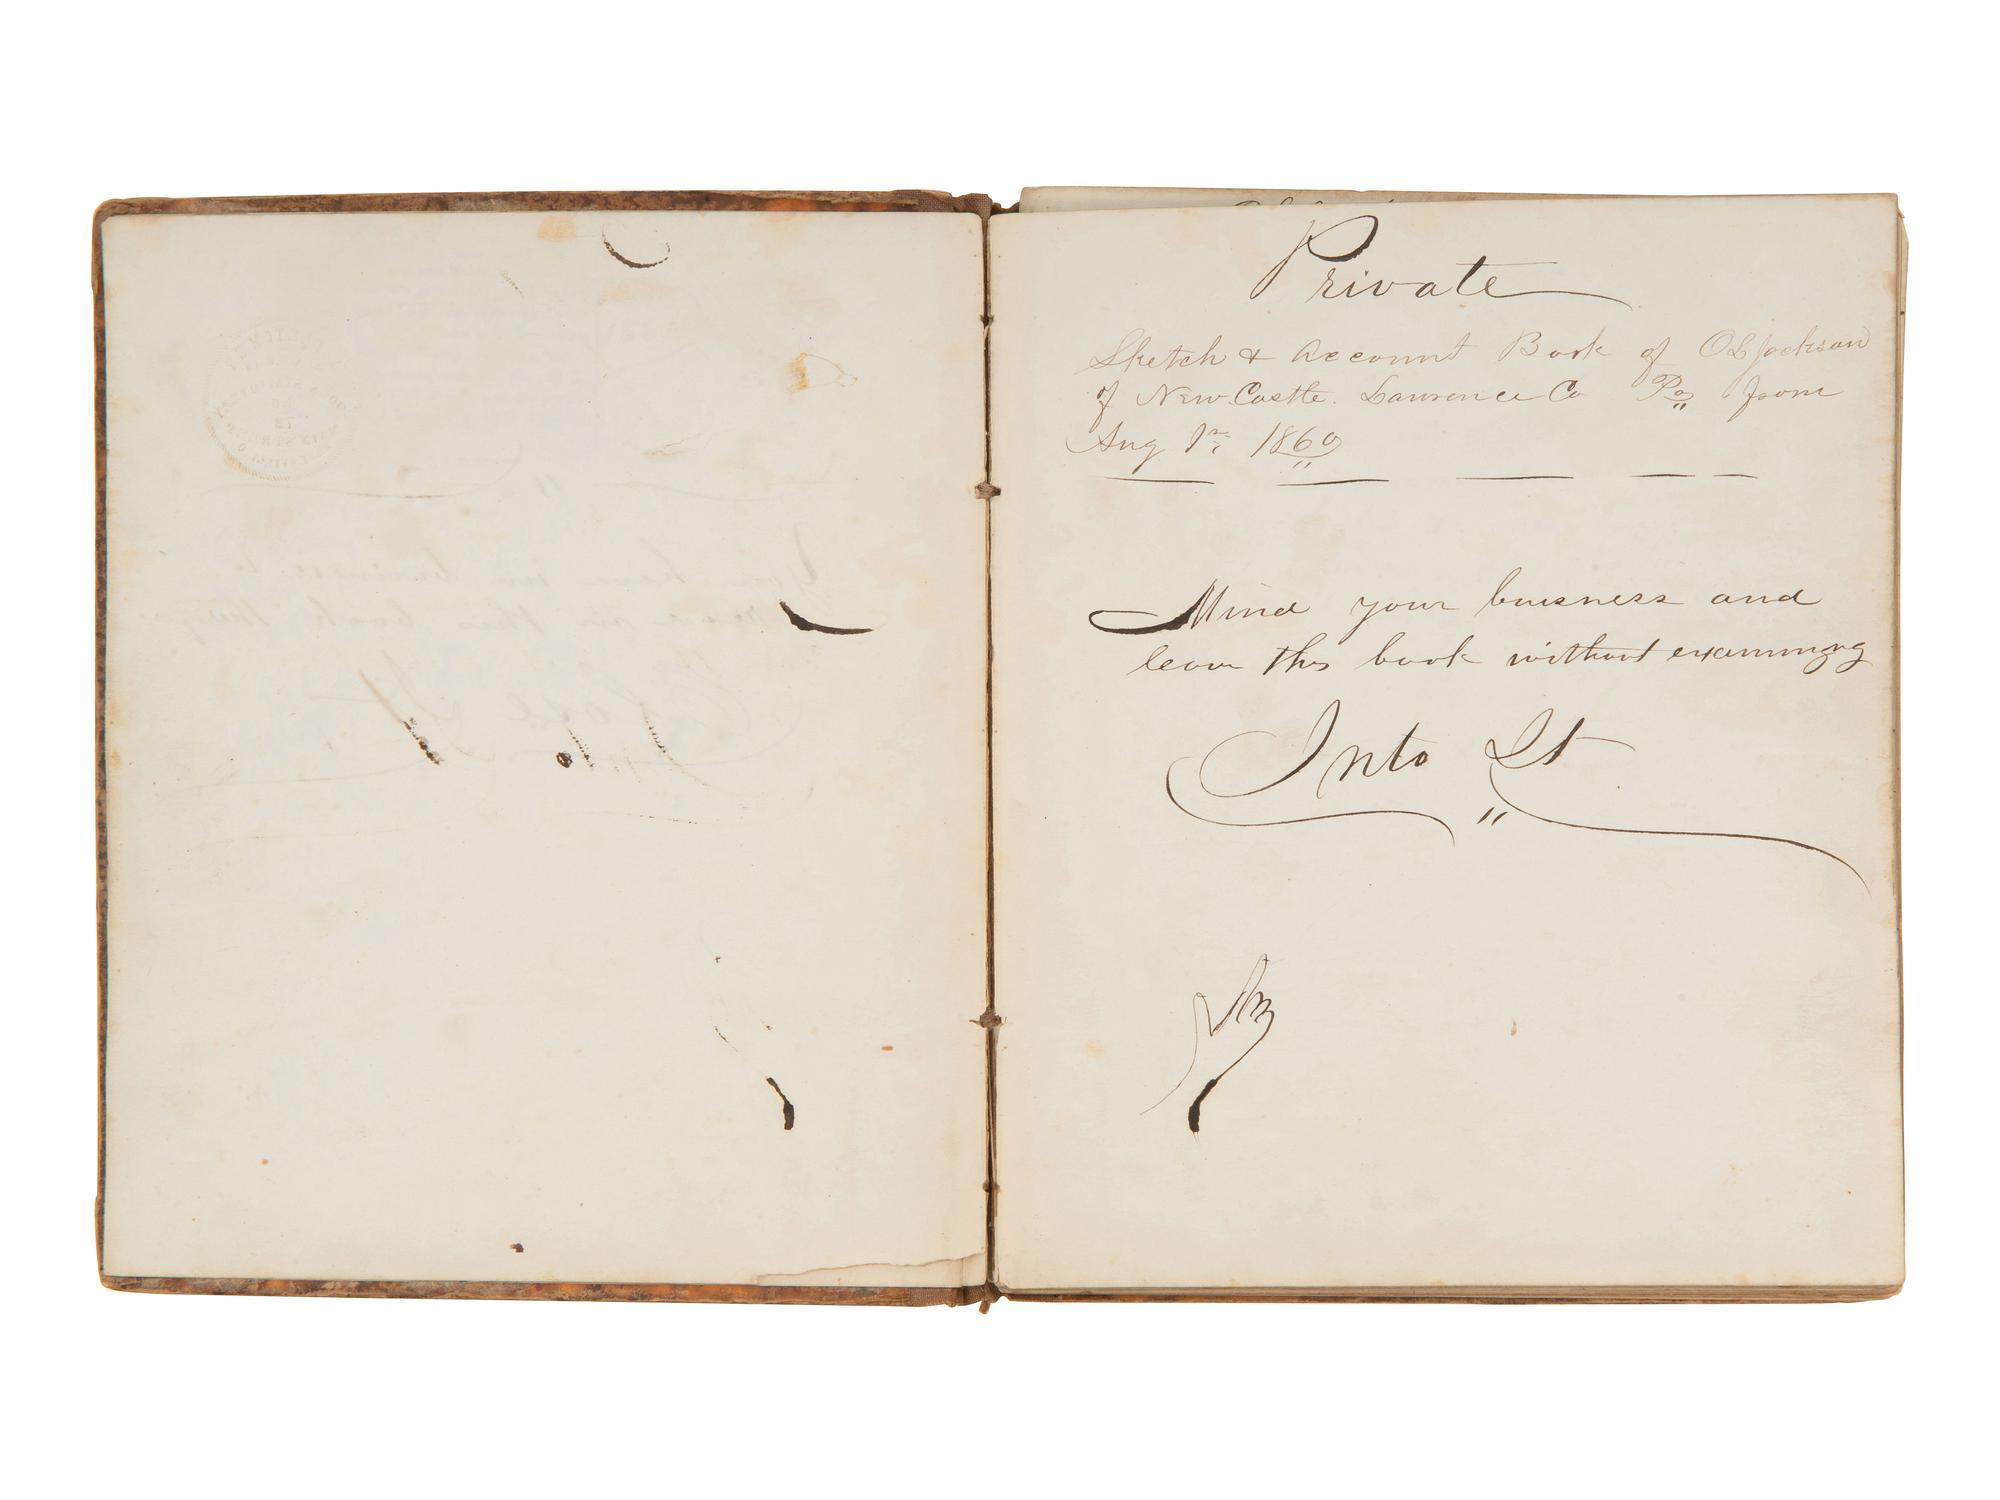 Private
Sketch & Account Book of O L Jackson
of New Castle. Lawrence Co Pa from
Aug 1st 1860
Mind your buisness and
leave this book without examining
Into It